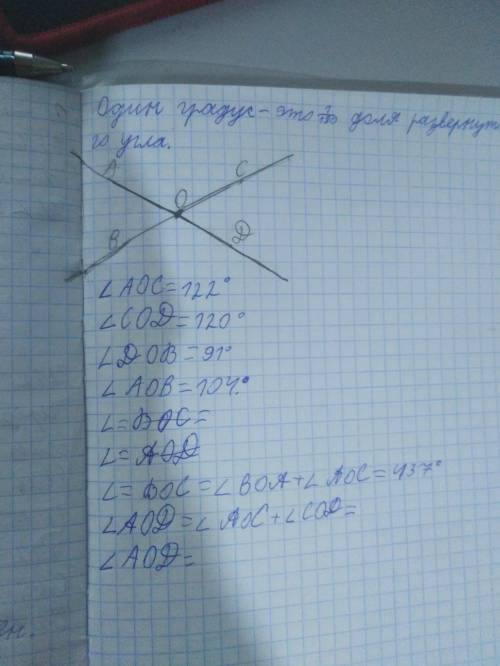 Один градус - это доля развернуто
го угла.
A C
O
B D
∠AOC = 122°
∠COD = 120°
∠DOB = 91°
∠AOB = 104°
∠ = BOC =
∠ = AOD
∠ = BOC = ∠BOA + ∠AOC = 437°
∠AOD = ∠AOC + ∠COD =
∠AOD =
ен.